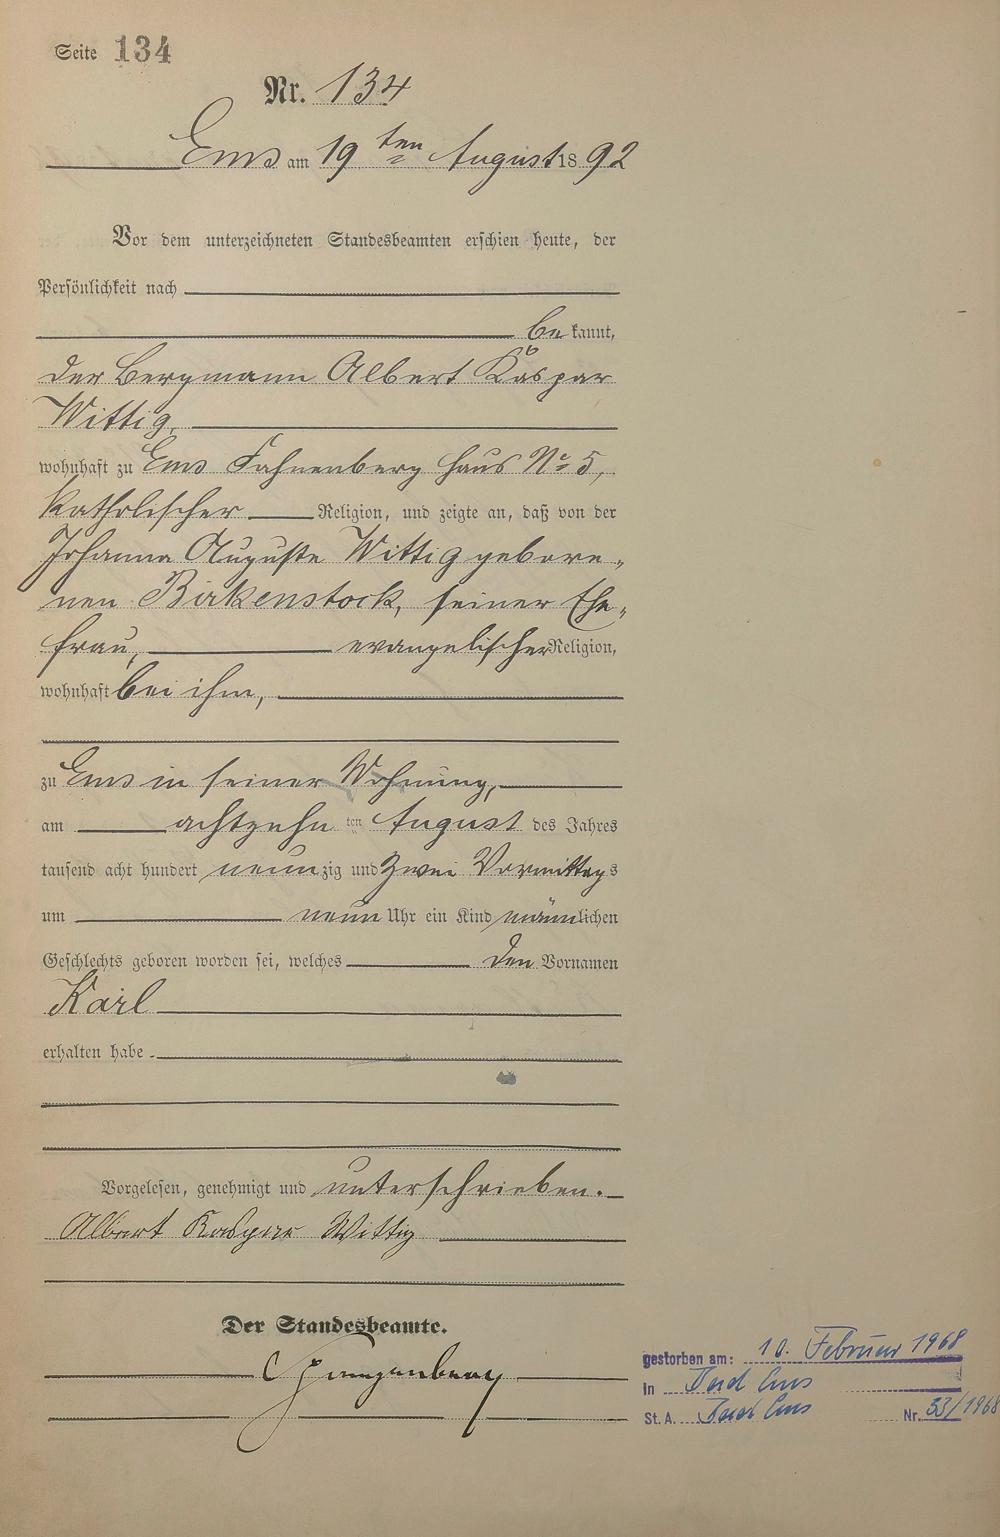 Seite 134
Nr. 134
Ems am 19ten August 1892
Vor dem unterzeichneten Standesbeamten erschien heute, der
Persönlichkeit nach
bekannt,
der Bergmann Albert Kaspar
Wittig,
wohnhaft zu Ems Fahnenberg Haus No 5,
katholischer Religion, und zeigte an, daß von der
Johanna Auguste Wittig gebore-
nen Birkenstock, seiner Ehe-
frau, evangelischer Religion,
wohnhaft bei ihm,
zu Ems in seiner Wohnung,
am achtzehn ten August des Jahres
tausend acht hundert neunzig und zwei Vormittags
um neun Uhr ein Kind männlichen
Geschlechts geboren worden sei, welches den Vornamen
Karl
erhalten habe.
Vorgelesen, genehmigt und unterschrieben.
Albert Kaspar Wittig
Der Standesbeamte.
gestorben am: 10. Februar 1968
in Bad Ems
St. A. Bad Ems Nr. 33/1968